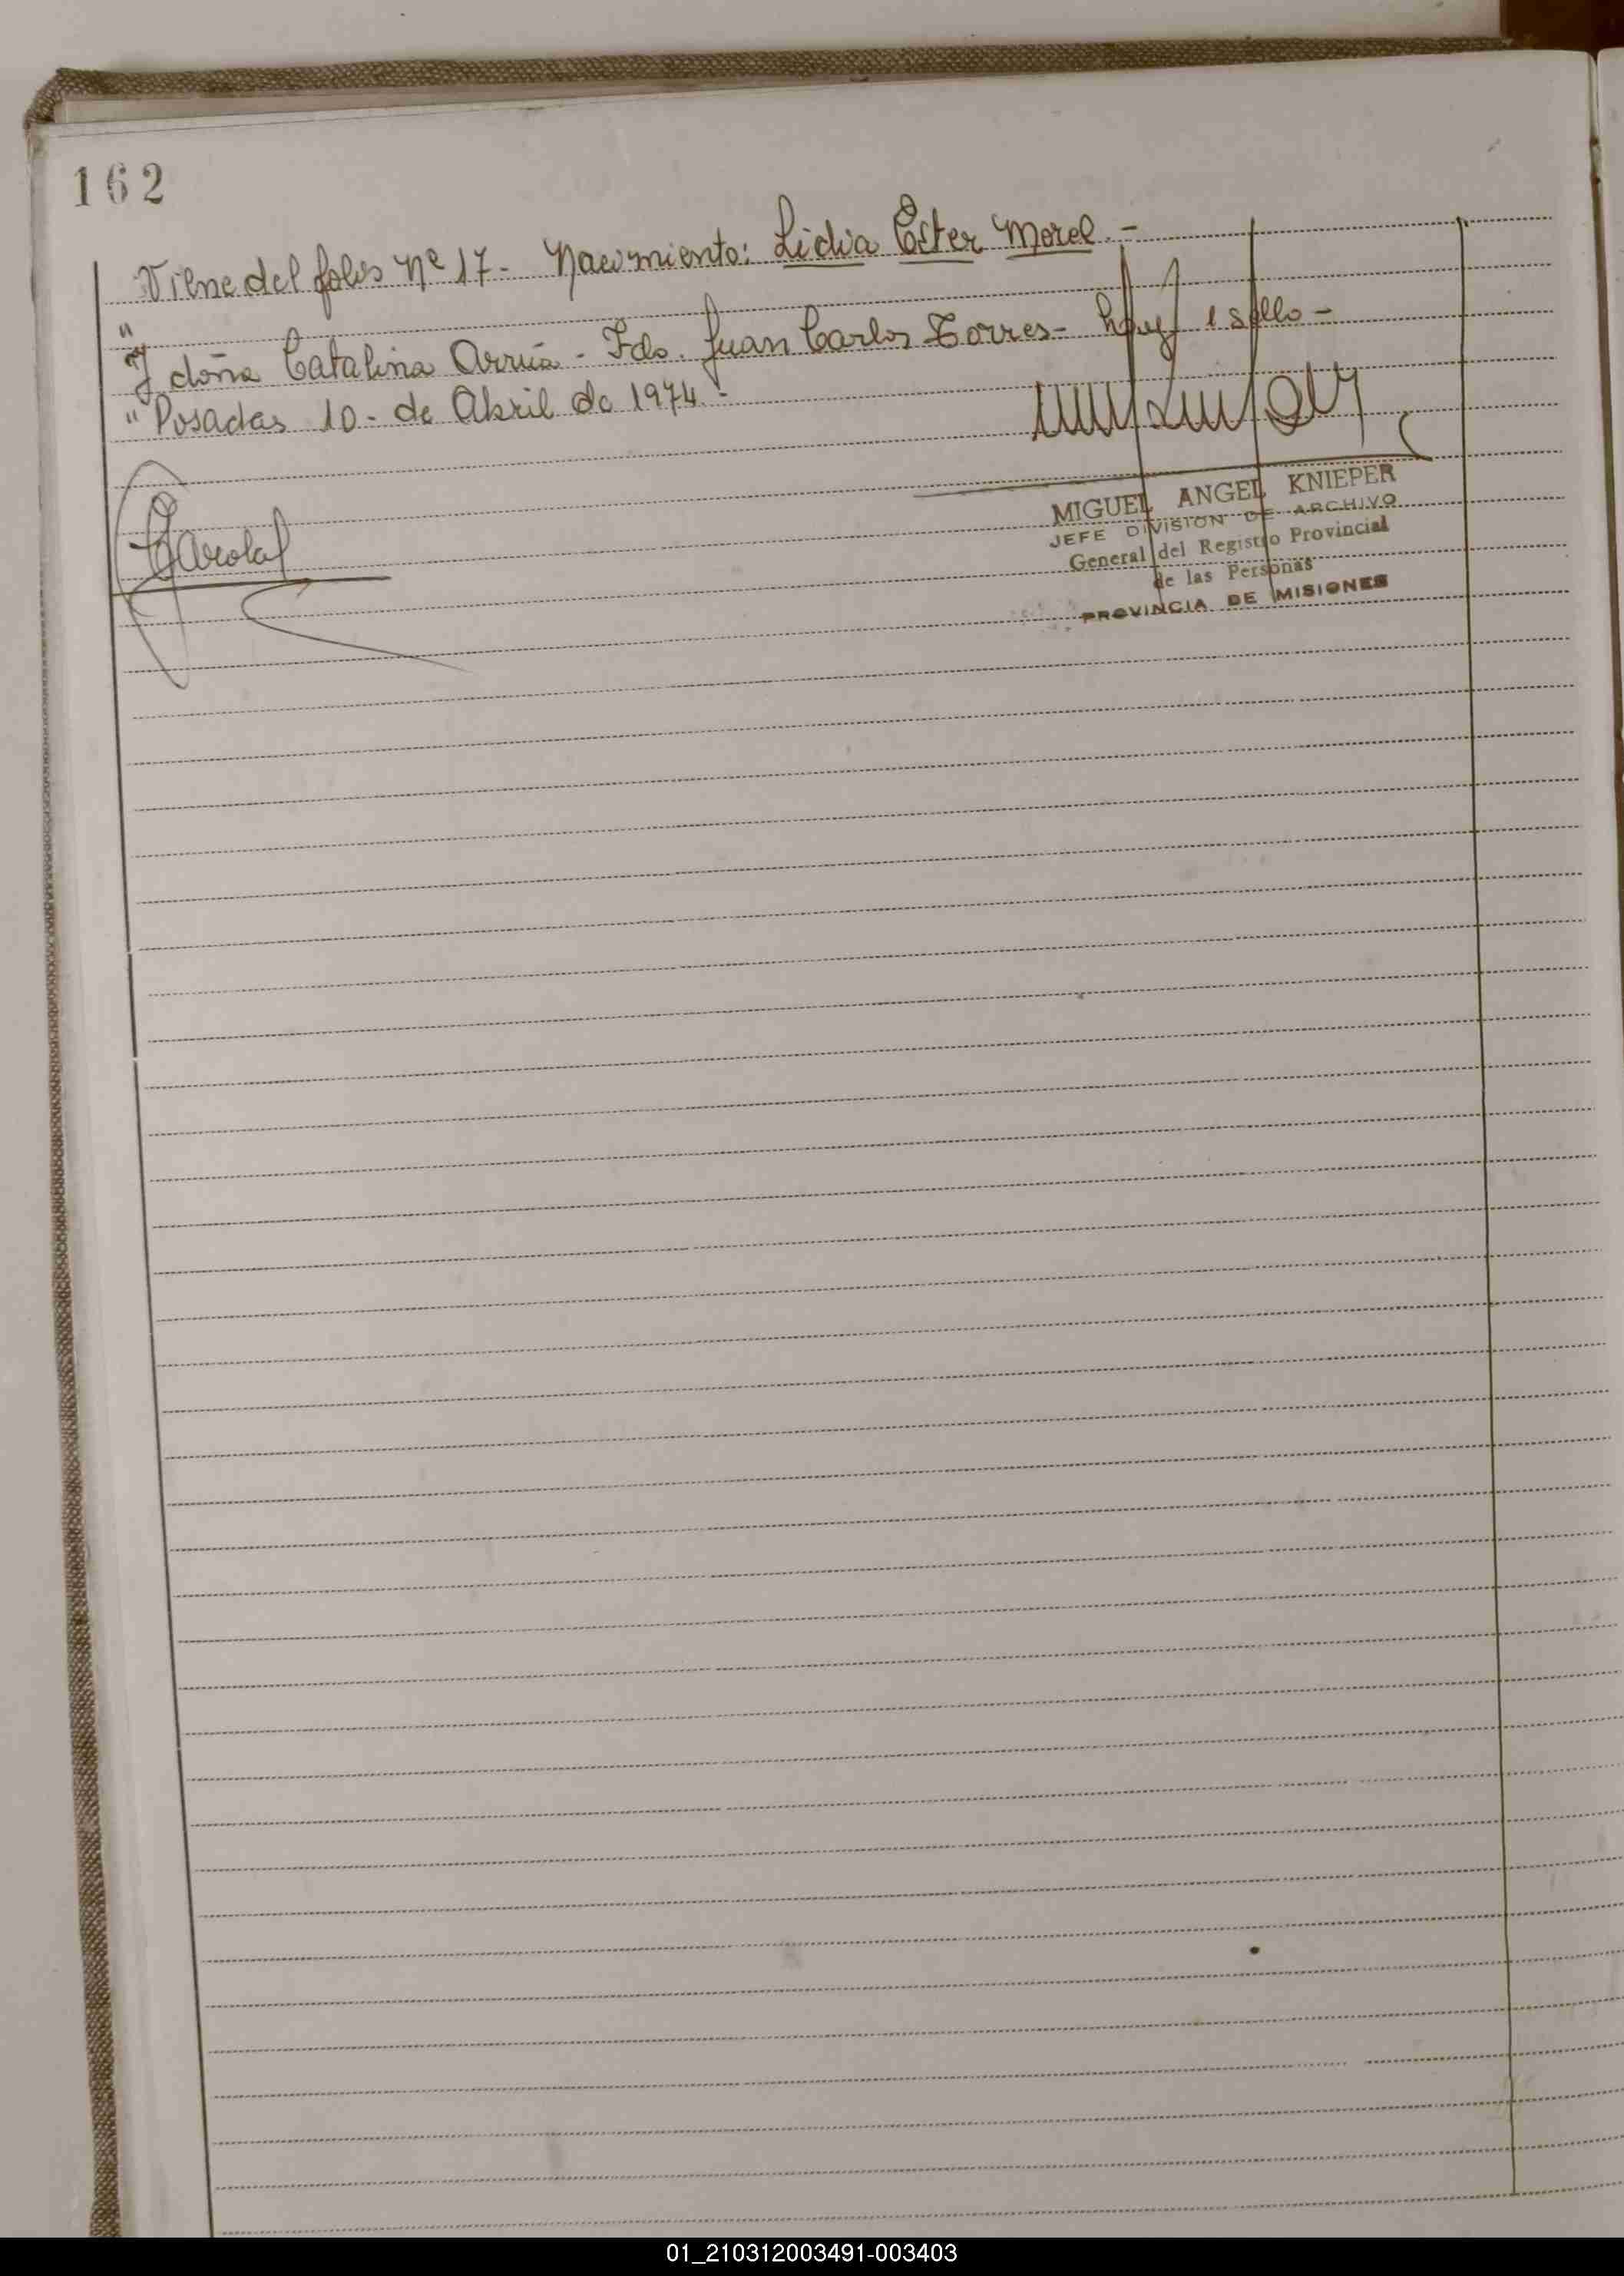 162
Viene del folio Nº 17 - Nacimiento: Lidia Ester Morel. -
"
"y doña Catalina Arrúa - Fdo. Juan Carlos Torres - hay 1 sello -
" Posadas 10 - de Abril de 1974. -
MIGUEL ANGEL KNIEPER
JEFE DIVISION DE ARCHIVO
General del Registro Provincial
de las Personas
PROVINCIA DE MISIONES
01_210312003491-003403